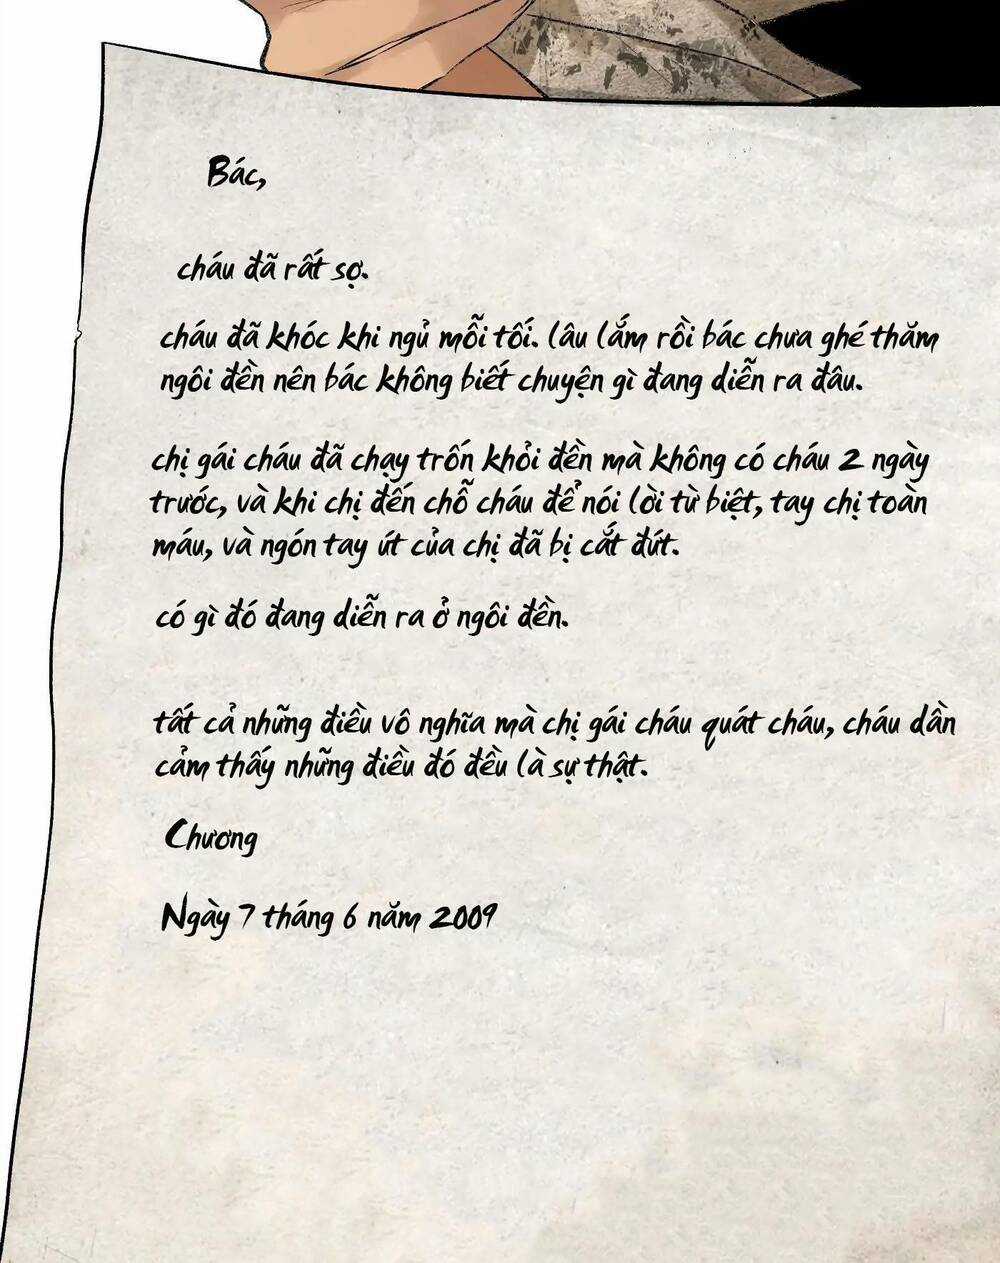 Bác,
cháu đã rất sợ.
cháu đã khóc khi ngủ mỗi tối. lâu lắm rồi bác chưa ghé thăm
ngôi đền nên bác không biết chuyện gì đang diễn ra đâu.
chị gái cháu đã chạy trốn khỏi đền mà không có cháu 2 ngày
trước, và khi chị đến chỗ cháu để nói lời từ biệt, tay chị toàn
máu, và ngón tay út của chị đã bị cắt đứt.
có gì đó đang diễn ra ở ngôi đền.
tất cả những điều vô nghĩa mà chị gái cháu quát cháu, cháu dần
cảm thấy những điều đó đều là sự thật.
Chương
Ngày 7 tháng 6 năm 2009